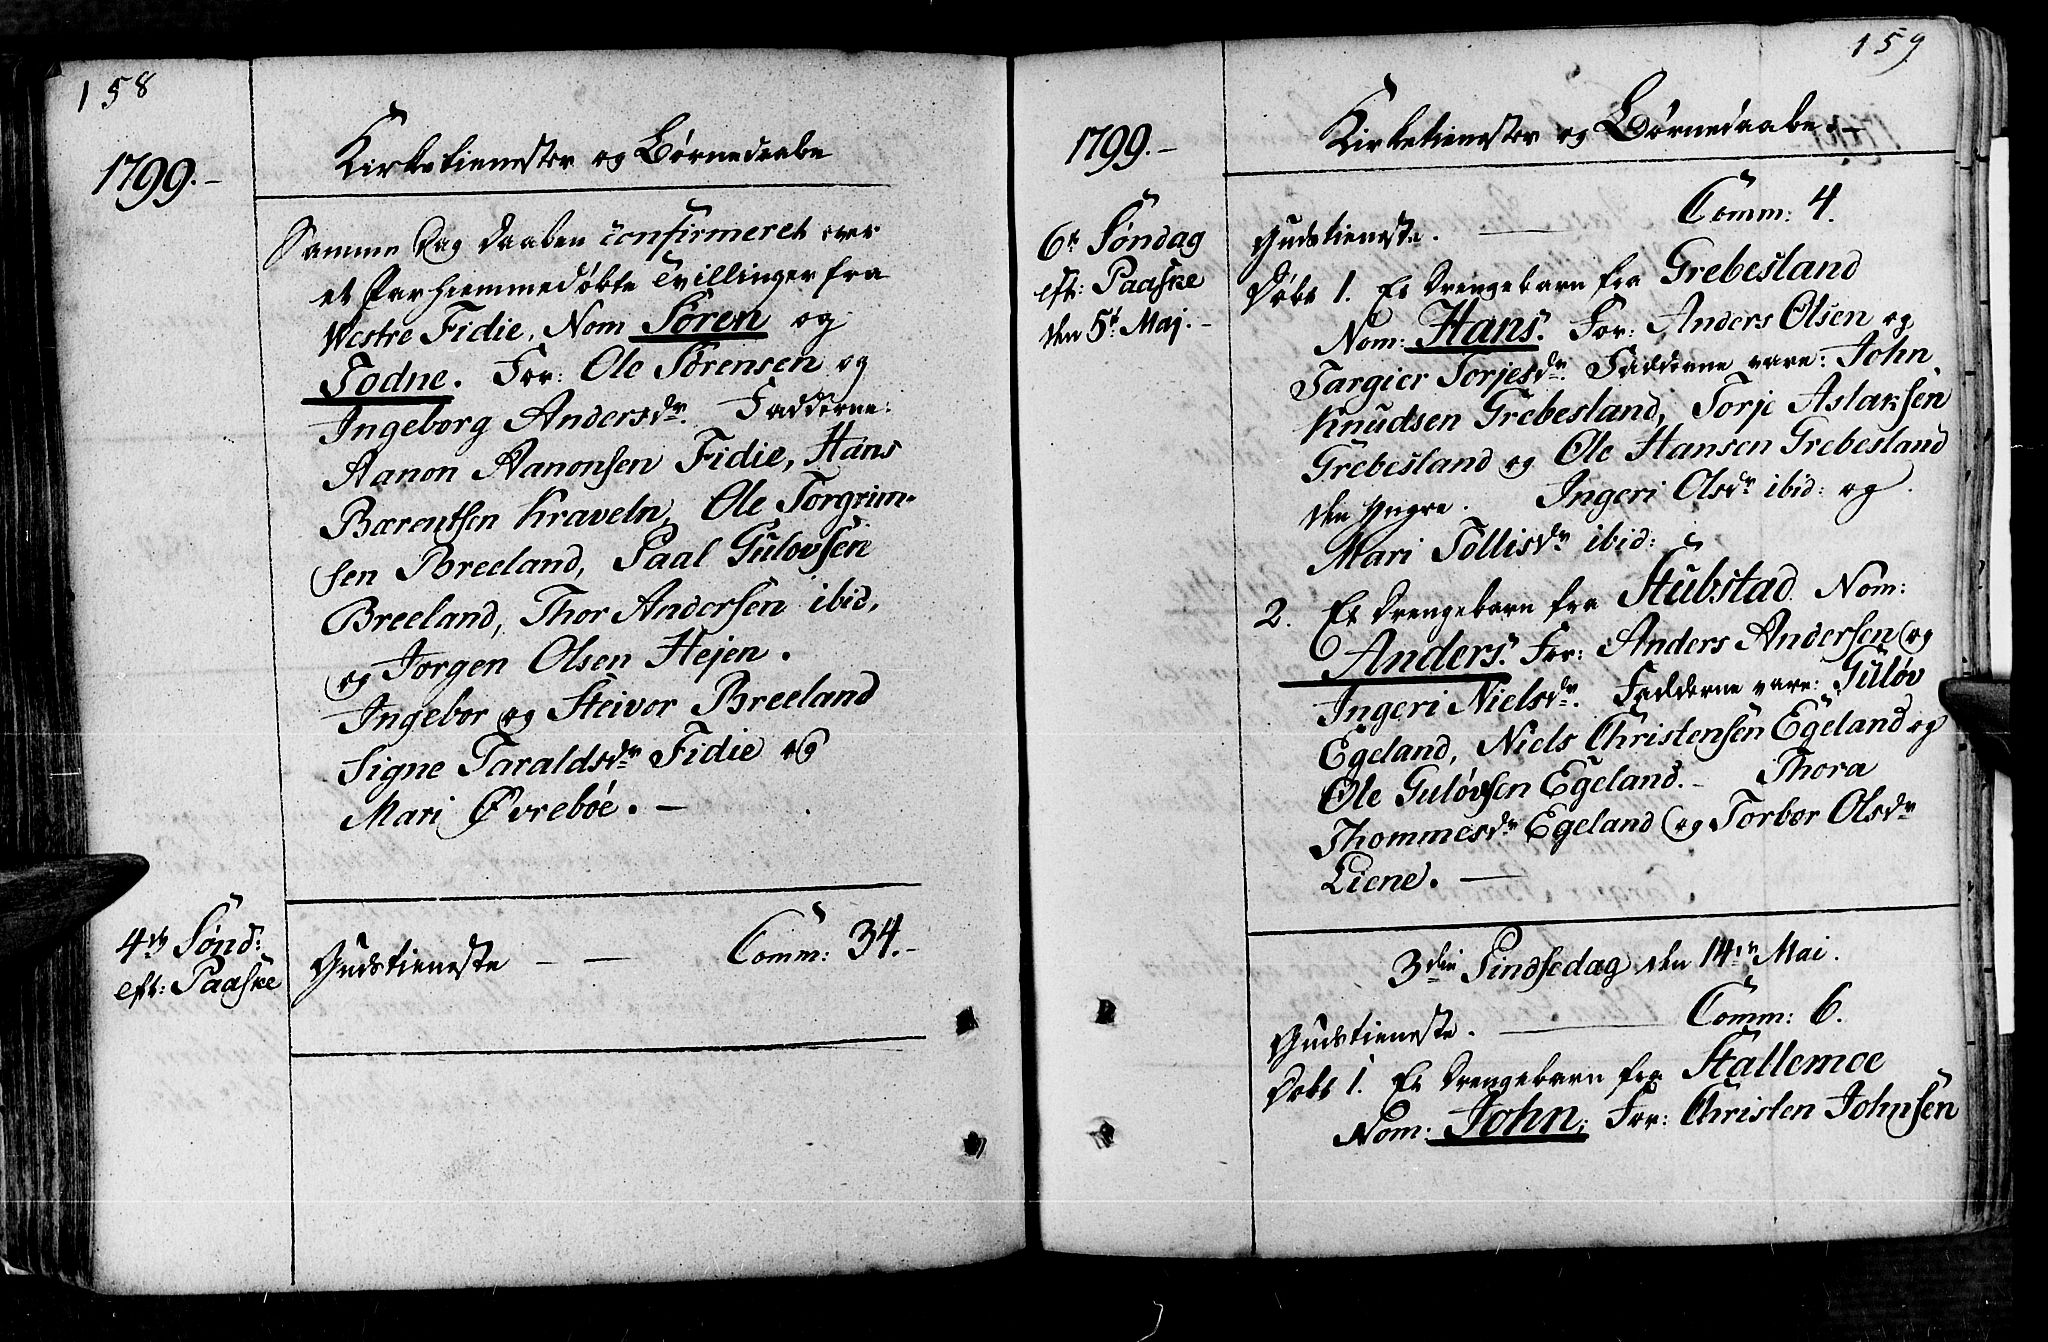 158
1799.-
Kirketienester og Børnedaabe
Samme Dag Daaben confirmeret over
et Par hiemmedøbte Tvillinger fra
Westre Fidie, Nom Sören og
Todne. For: Ole Sörensen og
Ingeborg Andersdr. Fadderne:
Aanon Aanonsen Fidie, Hans
Bærentsen Kraveln, Ole Torgrim-
sen Breeland, Paal Gulovsen
Breeland, Thor Andersen ibid,
og Jörgen Olsen Hejen.
Ingebor og Steivor Breeland
Signe Taraldsdr Fidie og
Mari Øvreböe. -
4de Sønd:
eft: Paaske
Gudstieneste - - Comm: 34.-
159
1799.-
Kirketienester og Børnedaabe.-
6te Søndag
eft: Paaske
den 5t. Maj.-
Gudstieneste. - Comm: 4.
Døbt 1. Et Drengebarn fra Grebesland
Nom: Hans. For: Anders Olsen og
Targier Torjesdr. Fadderne vare: John
Knudsen Grebesland, Torje Aslaksen
Grebesland og Ole Hansen Grebesland
den Yngre. Ingeri Olsdr ibid: og
Mari Tollisdr ibid:
2. Et Drengebarn fra Stubstad Nom:
Anders. For: Anders Andersen og
Ingeri Nielsdr. Fadderne vare: Guløv
Egeland, Niels Christensen Egeland og
Ole Guløvsen Egeland.- Thora
Thommesdr Egeland og Torbor Olsdr
Liene. -
3die Pindsedag den 14de Mai.
Gudstieneste. - Comm: 6.
Døbt 1. Et Drengebarn fra Stallemoe
Nom: John. For: Christen Johnsen